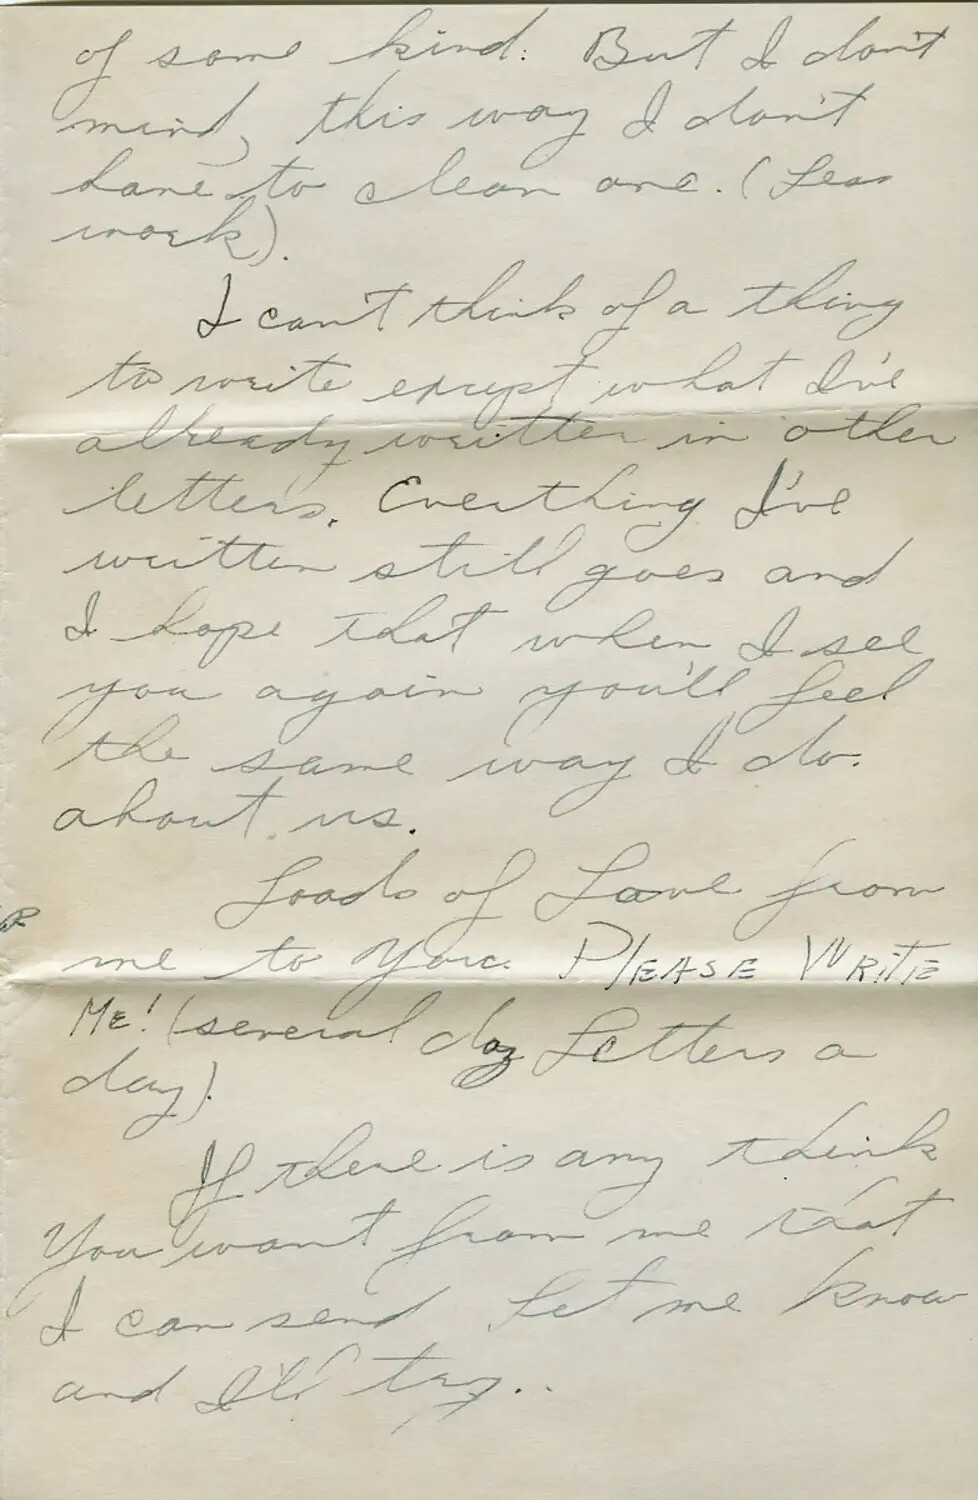 of some kind. But I don't
mind, this way I don't
have to clean one. (Less
work).
I can't think of a thing
to write except what I've
already written in other
letters. Everthing I've
written still goes and
I hope that when I see
you again you'll feel
the same way I do.
about us.
Loads of Love from
me to You. PLEASE WRITE
ME! (several Letters a
day).
If there is any think
You want from me that
I can send let me know
and I'll try..